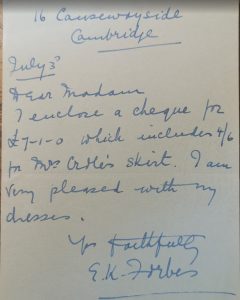 16 Causewayside
Cambridge
July 3ʳ
Dear Madam
I enclose a cheque for
£7-1-0 which includes 4/6
for Mrs skirt. I am
very pleased with my
dresses.
Yrs Faithfully
E.K. Forbes